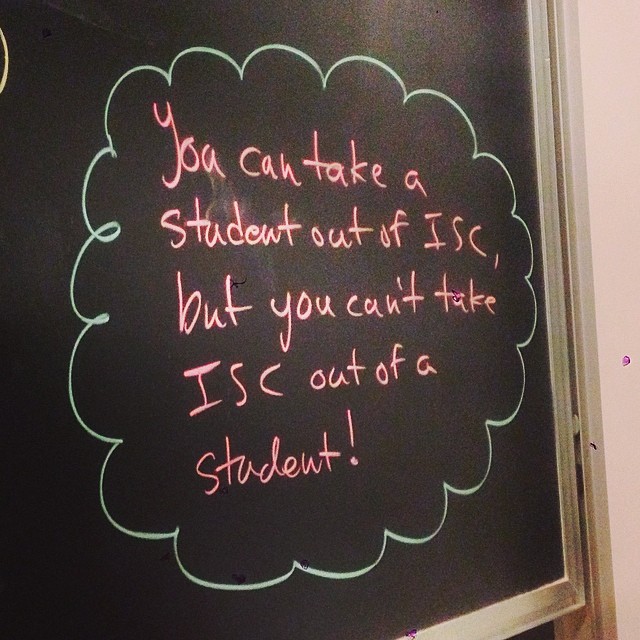 You can take a
student out of ISC,
but you can't take
ISC out of a
student!